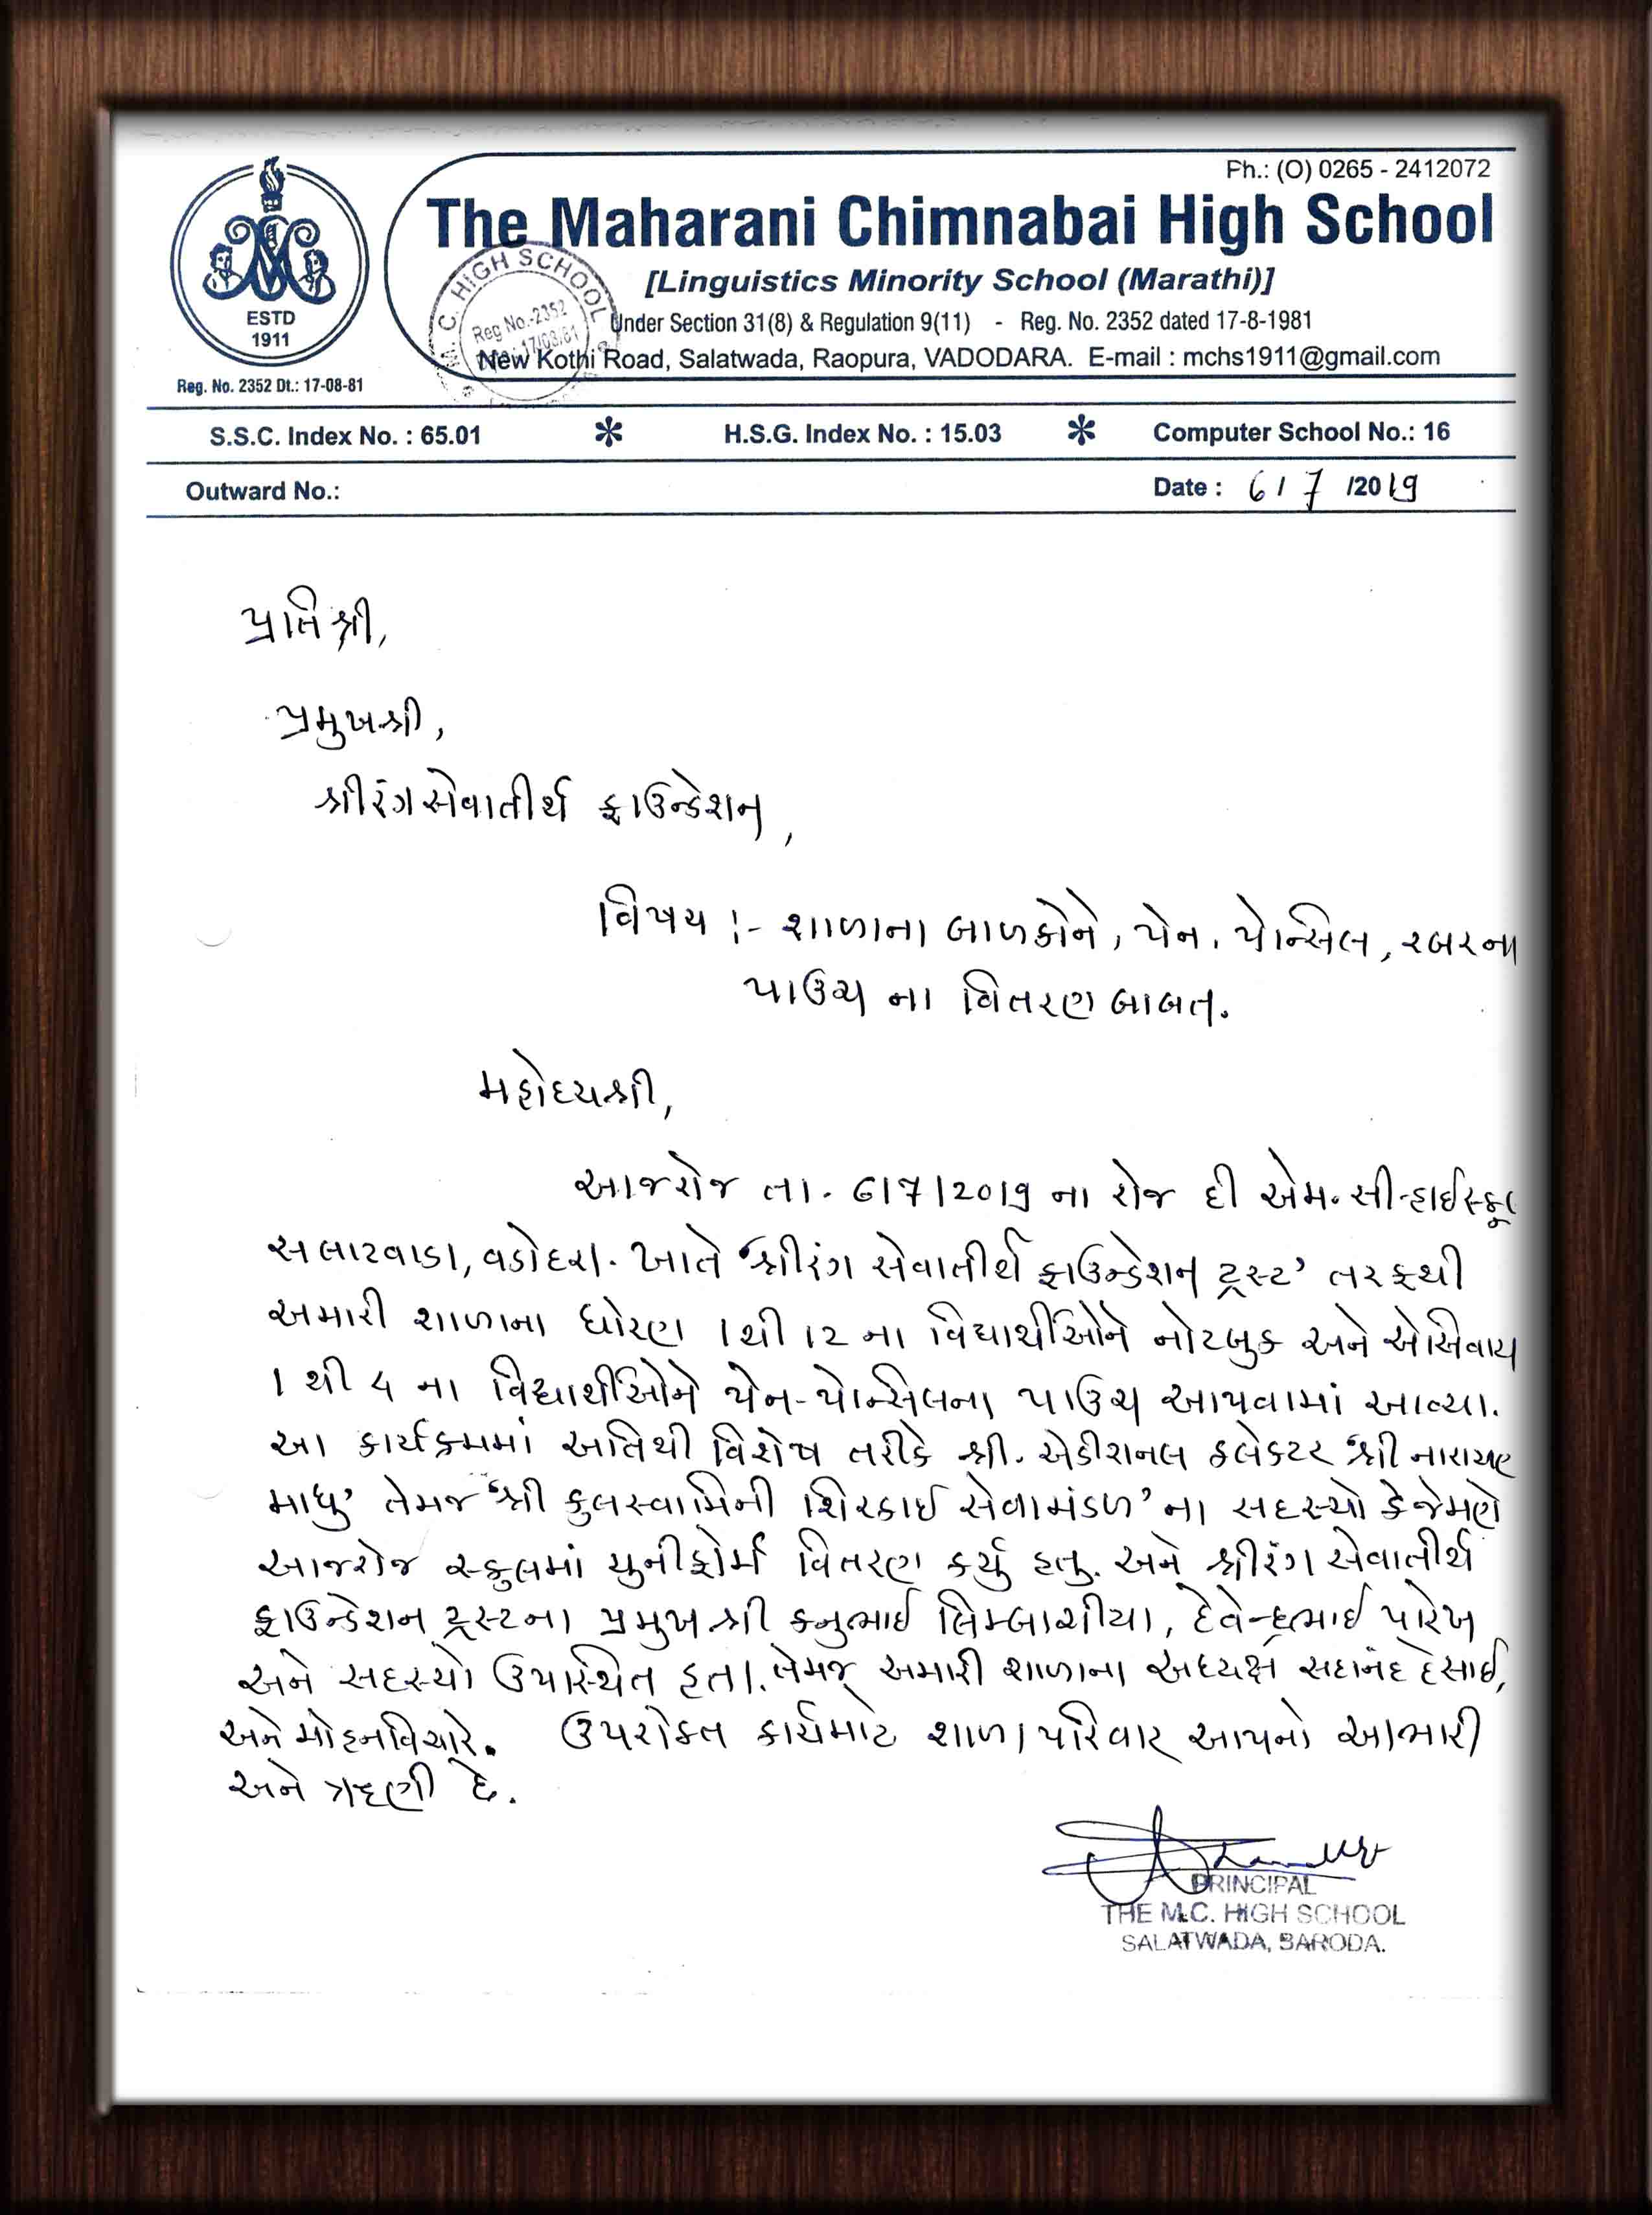 Ph.: (O) 0265 - 2412072
The Maharani Chimnabai High School
[Linguistics Minority School (Marathi)]
Under Section 31(8) & Regulation 9(11) - Reg. No. 2352 dated 17-8-1981
New Kothi Road, Salatwada, Raopura, VADODARA. E-mail : mchs1911@gmail.com
ESTD
1911
Reg. No. 2352 Dt.: 17-08-81
M. C. HIGH SCHOOL
Reg No.-2352
17/08/81
S.S.C. Index No. : 65.01 * H.S.G. Index No. : 15.03 * Computer School No.: 16
Outward No.: Date : 6/7/2019
પ્રતિશ્રી,
પ્રમુખશ્રી,
શ્રીરંગ સેવાતીર્થ ફાઉન્ડેશન,
વિષય :- શાળાના બાળકોને, પેન, પેન્સિલ, રબરના
પાઉચ ના વિતરણ બાબત.
મહોદયશ્રી,
આજરોજ તા. 6/7/2019 ના રોજ દી એમ. સી. હાઈસ્કૂલ
સલાટવાડા, વડોદરા. ખાતે "શ્રીરંગ સેવાતીર્થ ફાઉન્ડેશન ટ્રસ્ટ' તરફથી
અમારી શાળાના ધોરણ 1 થી 12 ના વિદ્યાર્થીઓને નોટબુક અને એ સિવાય
1 થી 4 ના વિદ્યાર્થીઓને પેન-પેન્સિલના પાઉચ આપવામાં આવ્યા.
આ કાર્યક્રમમાં અતિથી વિશેષ તરીકે શ્રી. એડીશનલ કલેક્ટર "શ્રી નારાયણ
માધુ' તેમજ "શ્રી કુલસ્વામિની શિરકાઈ સેવામંડળ' ના સદસ્યો કે જેમણે
આજરોજ સ્કુલમાં યુનીફોર્મ વિતરણ કર્યુ હતુ. અને શ્રીરંગ સેવાતીર્થ
ફાઉન્ડેશન ટ્રસ્ટના પ્રમુખ શ્રી કનુભાઈ લિમ્બાશીયા, દેવેન્દ્રભાઈ પારેખ
અને સદસ્યો ઉપસ્થિત હતા. તેમજ અમારી શાળાના અધ્યક્ષ સદાનંદ દેસાઈ,
અને મોહન વિચારે. ઉપરોક્ત કાર્યમાટે શાળા પરિવાર આપનો આભારી
અને ઋણી છે.
PRINCIPAL
THE M.C. HIGH SCHOOL
SALATWADA, BARODA.